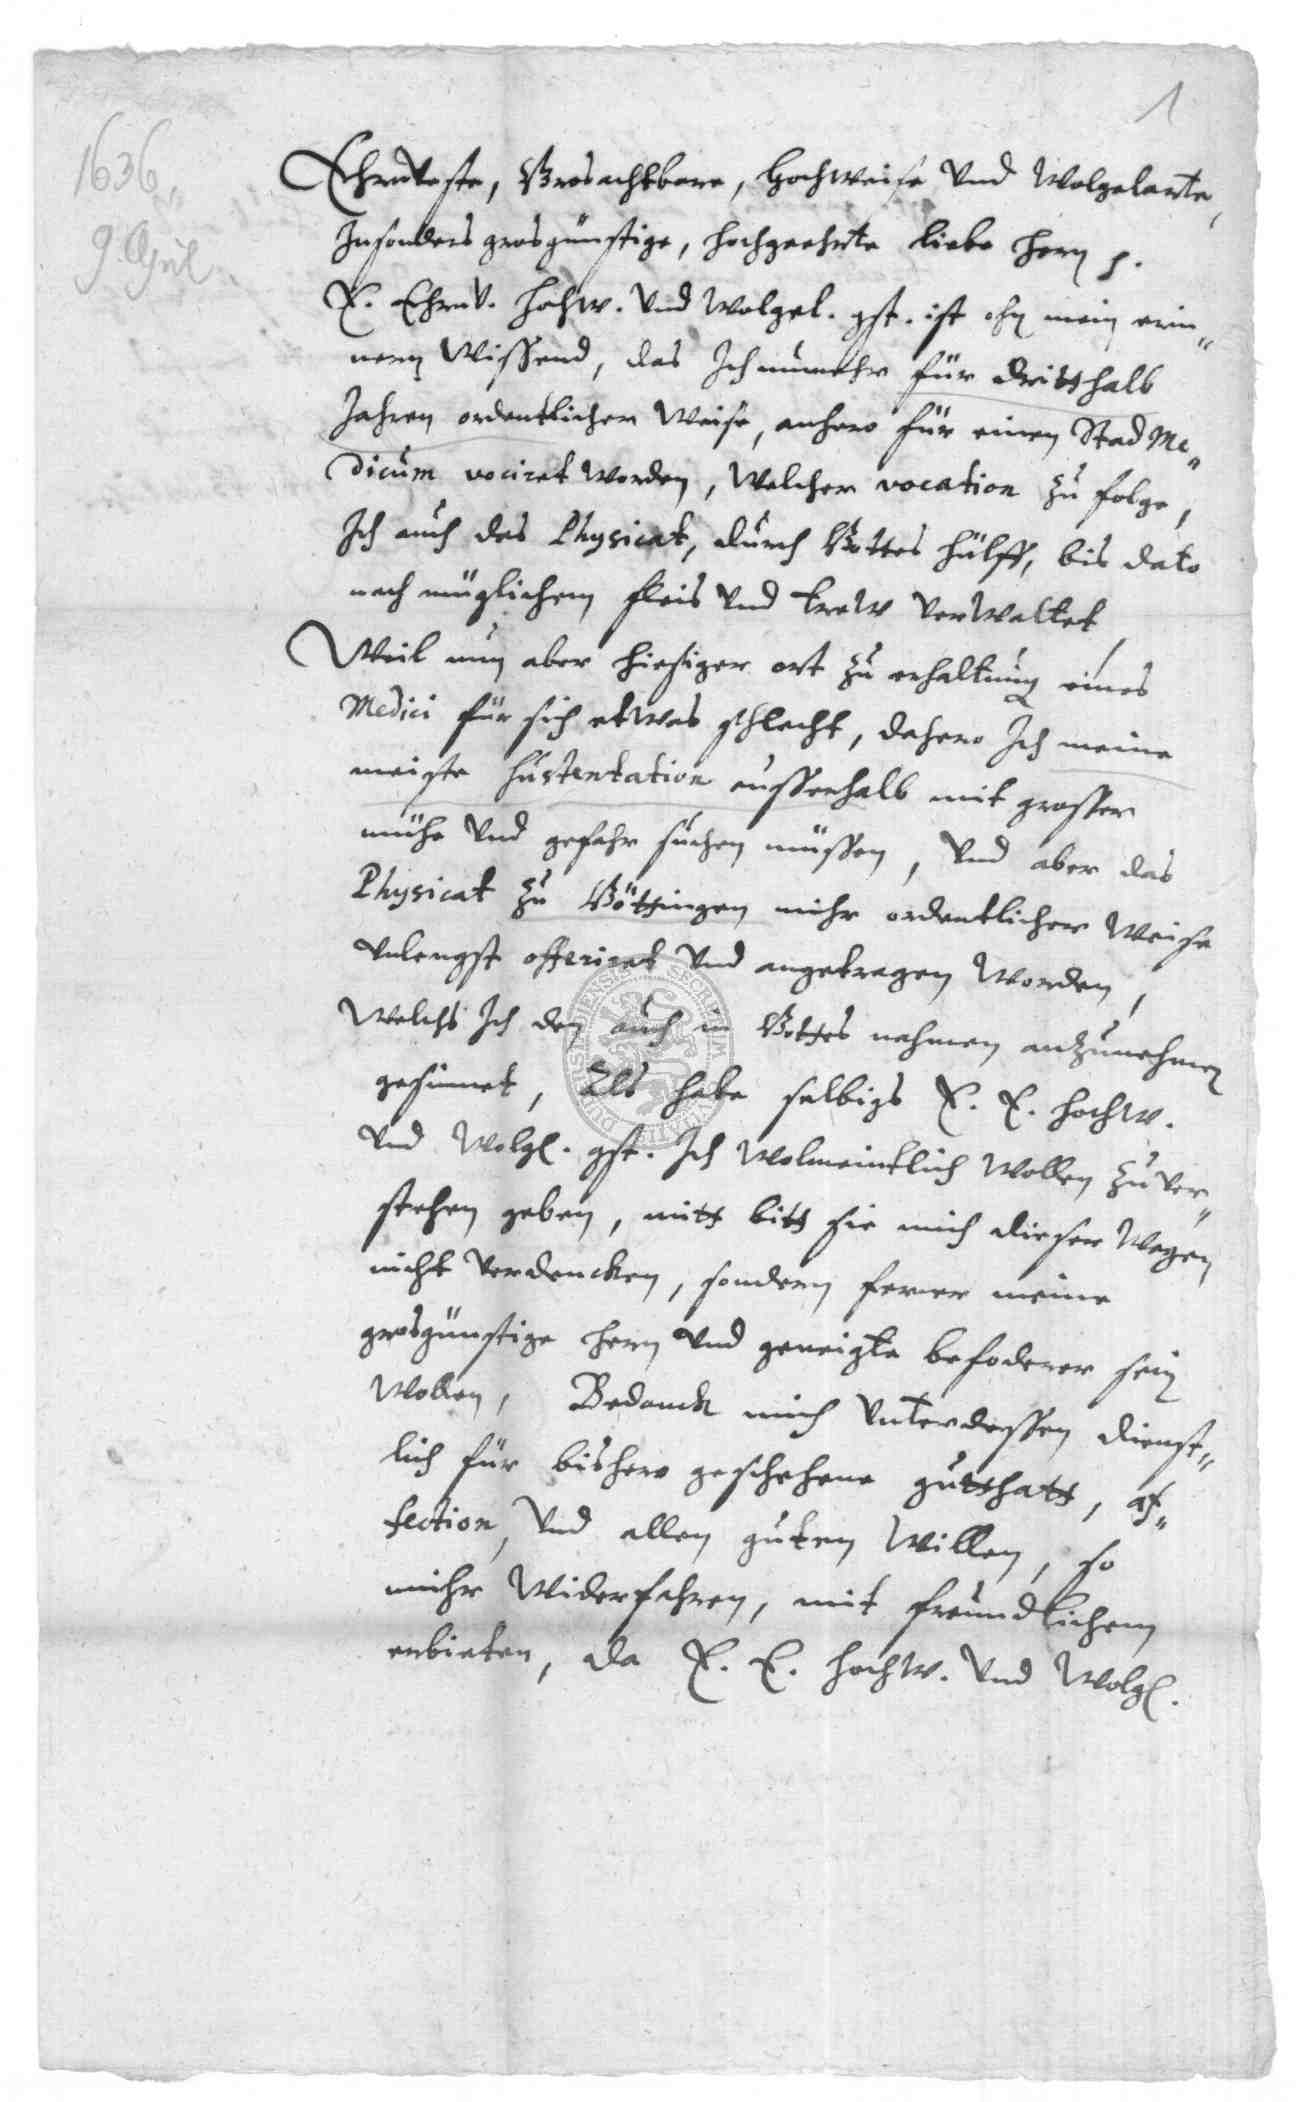 1
1636,
9. April
Ehrnveste, Grosachtbare, Hochweise und Wolgelarte,
Insonders grosgünstige, hochgeehrte liebe Hern p.
E. Ehrnv. hochw. und Wolgel. gst. ist ohn mein erin„
nern Wissend, das Ich nunmehr für dritthalb
Jahren ordentlicher Weise, anhero für einen Stad Me„
dicum vociret worden, Welcher vocation zu folge,
Ich auch das Physicat, durch Gottes hülff, bis dato
nach müglichem fleis und trew verwaltet,
Weil nun aber hiesiger ort zu erhaltung eines
Medici für sich etwas schlecht, dahero Ich meine
meiste sustentation ausserhalb mit grosser
mühe und gefahr suchen müssen, und aber das
Physicat zu Göttingen mihr ordentlicher Weise
unlengst offeriret und angetragen worden,
Welchs Ich den auch in Gottes nahmen anzunehmen
gesinnet, Als habe selbigs E. E. hochw.
und Wolgl. gst. Ich wolmeintlich wollen zu ver„
stehen geben, mitt bitt sie mich dieser wegen
nicht verdencken, sondern ferner meine
grosgünstige hern und geneigte befoderer sein
wollen, Bedanck mich unterdessen dienst„
lich für bishero geschehene gutthatt, af„
fection, und allen guten willen, so
mihr widerfahren, mit freundlichem
erbieten, da E. E. hochw. und Wolgl.
SECRETUM